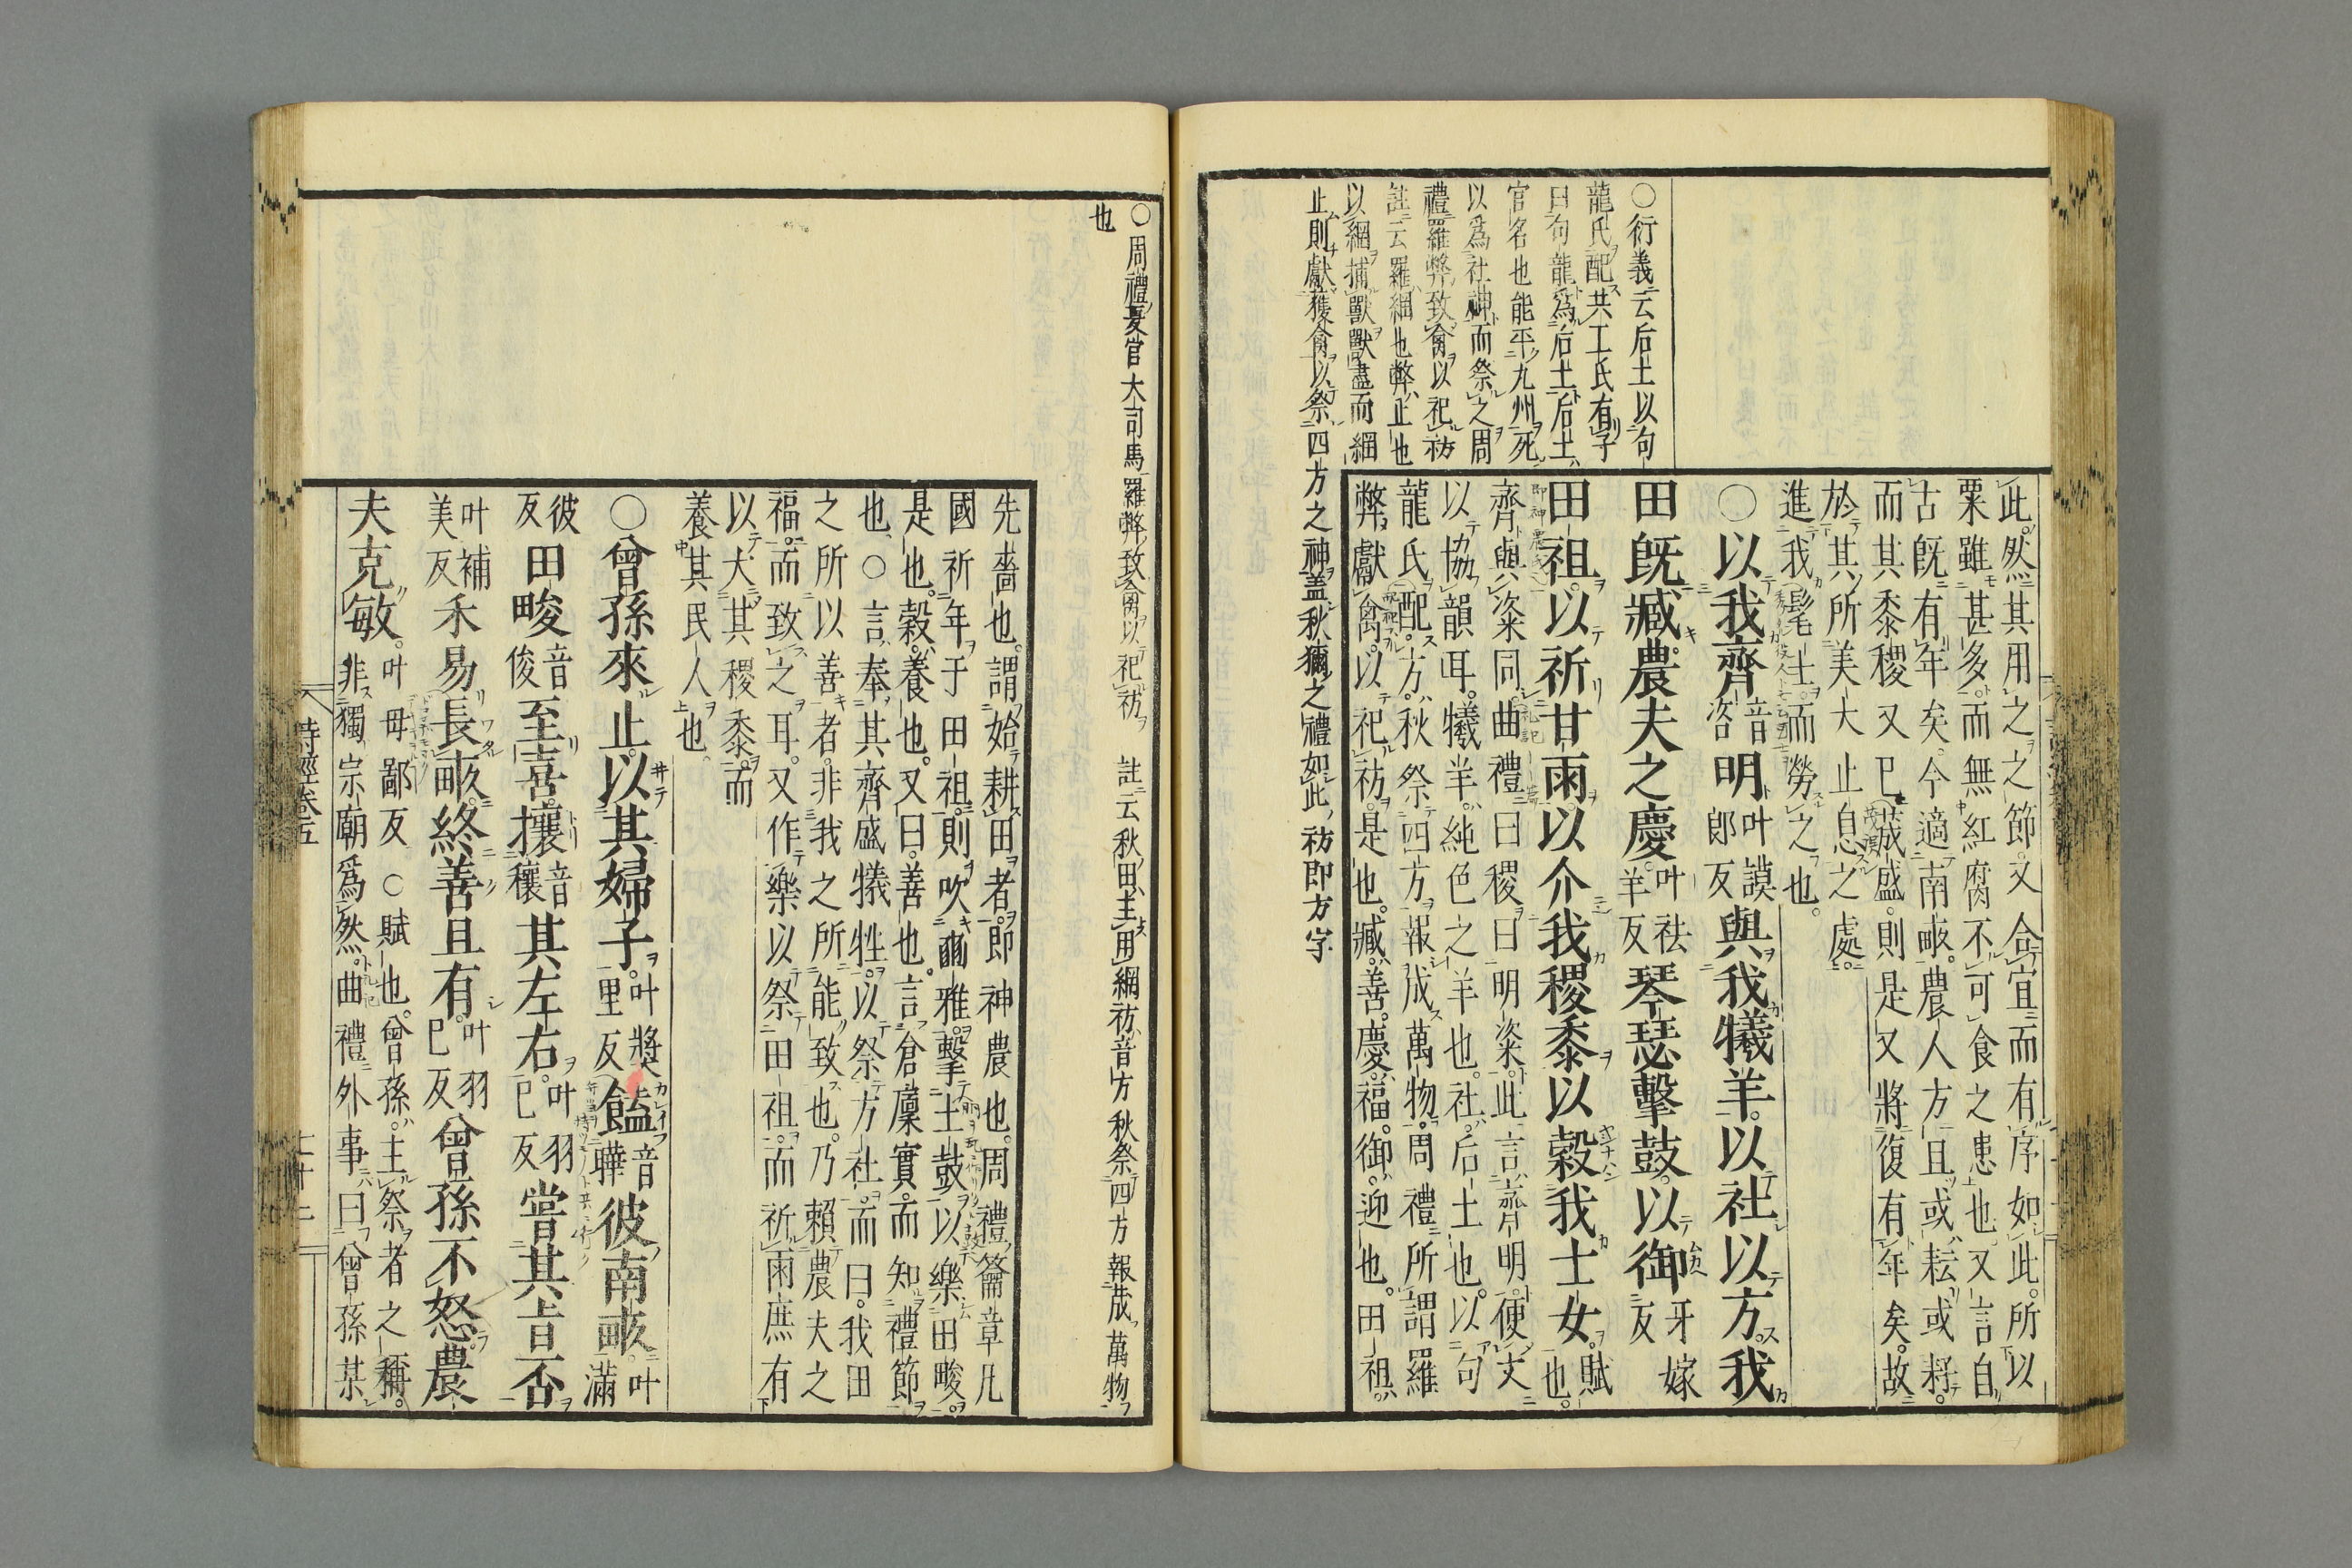 此。然其用之之節。又合宜而有序如此。所以
粟雖甚多。而無紅腐不可食之患也。又言自
古旣有年矣。今適南畝。農人方且或耘或耔。
而其黍稷又已茂盛。則是又將復有年矣。故
於其所美大止息之處。
進我髦士。而勞之也。
○以我齊音咨明叶謨郎反與我犧羊。以社以方。我
田旣臧。農夫之慶。叶袪羊反琴瑟擊鼓。以御牙嫁反
田祖。以祈甘雨。以介我稷黍。以穀我士女。賦也。
齊與粢同。曲禮曰稷曰明粢。此言齊明。便文
以協韻耳。犧羊。純色之羊也。社。后土也。以句
龍氏配。方。秋祭四方。報成萬物。周禮所謂羅
弊獻禽。以祀祊。是也。臧。善。慶。福。御。迎也。田祖。
○衍義云后土以句
龍氏配共工氏有子
曰句龍爲后土后土
官名也能平九州死
以爲社神而祭之周
禮羅弊致禽以祀祊
註云羅網也弊止也
以網捕獸獸盡而網
止則獻獲禽以祭四方之神盖秋獮之禮如此祊即方字
○周禮夏官大司馬羅弊致禽以祀祊 註云秋田主用網祊音方秋祭四方報成萬物
也
先嗇也。謂始耕田者。即神農也。周禮籥章凡
國祈年于田祖。則吹豳雅。擊土鼓以樂田畯。
是也。穀。養也。又曰。善也。言倉廩實。而知禮節
也。○言奉其齊盛犧牲。以祭方社。而曰。我田
之所以善者。非我之所能致也。乃賴農夫之
福。而致之耳。又作樂以祭田祖。而祈雨庶有
以大其稷黍。而
養其民人也。
○曾孫來止。以其婦子。叶獎里反饁音曄彼南畝。叶滿
彼反田畯音俊至喜。攘音穰其左右。叶羽已反嘗其旨否
叶補美反禾易長畝。終善且有。叶羽已反曾孫不怒。農
夫克敏。叶母鄙反○賦也。曾孫。主祭者之稱。
非獨宗廟爲然。曲禮外事曰曾孫某
詩經卷五